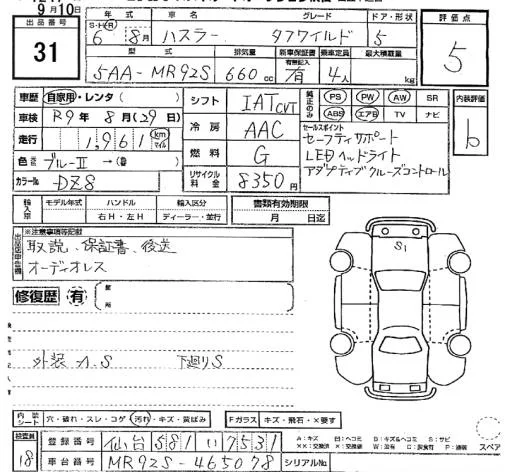 9月10日
出品番号
31
年式 車名 グレード ドア・形状 評価点
S・H・R
6 8月 ハスラー タフワイルド 5
5
型式 排気量 新車保証書 乗車定員 最大積載量
有無記入
5AA-MR92S 660cc 有 4人 kg
車歴 自家用・レンタ( )
車検 R9年 8月(29日)
走行 1,961 km マイル
色 ブルーⅡ→( )
カラーNo. DZ8
シフト IAT CVT
冷房 AAC
燃料 G
リサイクル料金 8350円
純正のみ PS PW AW SR
ABS エアB TV ナビ
内装評価
b
セールスポイント
セーフティサポート
LEDヘッドライト
アダプティブクルーズコントロール
輸入車 モデル年式 ハンドル 輸入区分 書類有効期限
右H・左H ディーラー・並行 月 日迄
※注意事項等記載
出品店申告欄
取説、保証書、後送
オーディオレス
修復歴 有 箇所
S1
外装 A.S 下廻りS
内装シート 穴・破れ・スレ・コゲ 汚れ・キズ・黄ばみ Fガラス キズ・飛石・X要す
検査員
18
登録番号 仙台 581 い 7531
車台番号 MR92S-465078 シリアルNo.
A：キズ
スペア